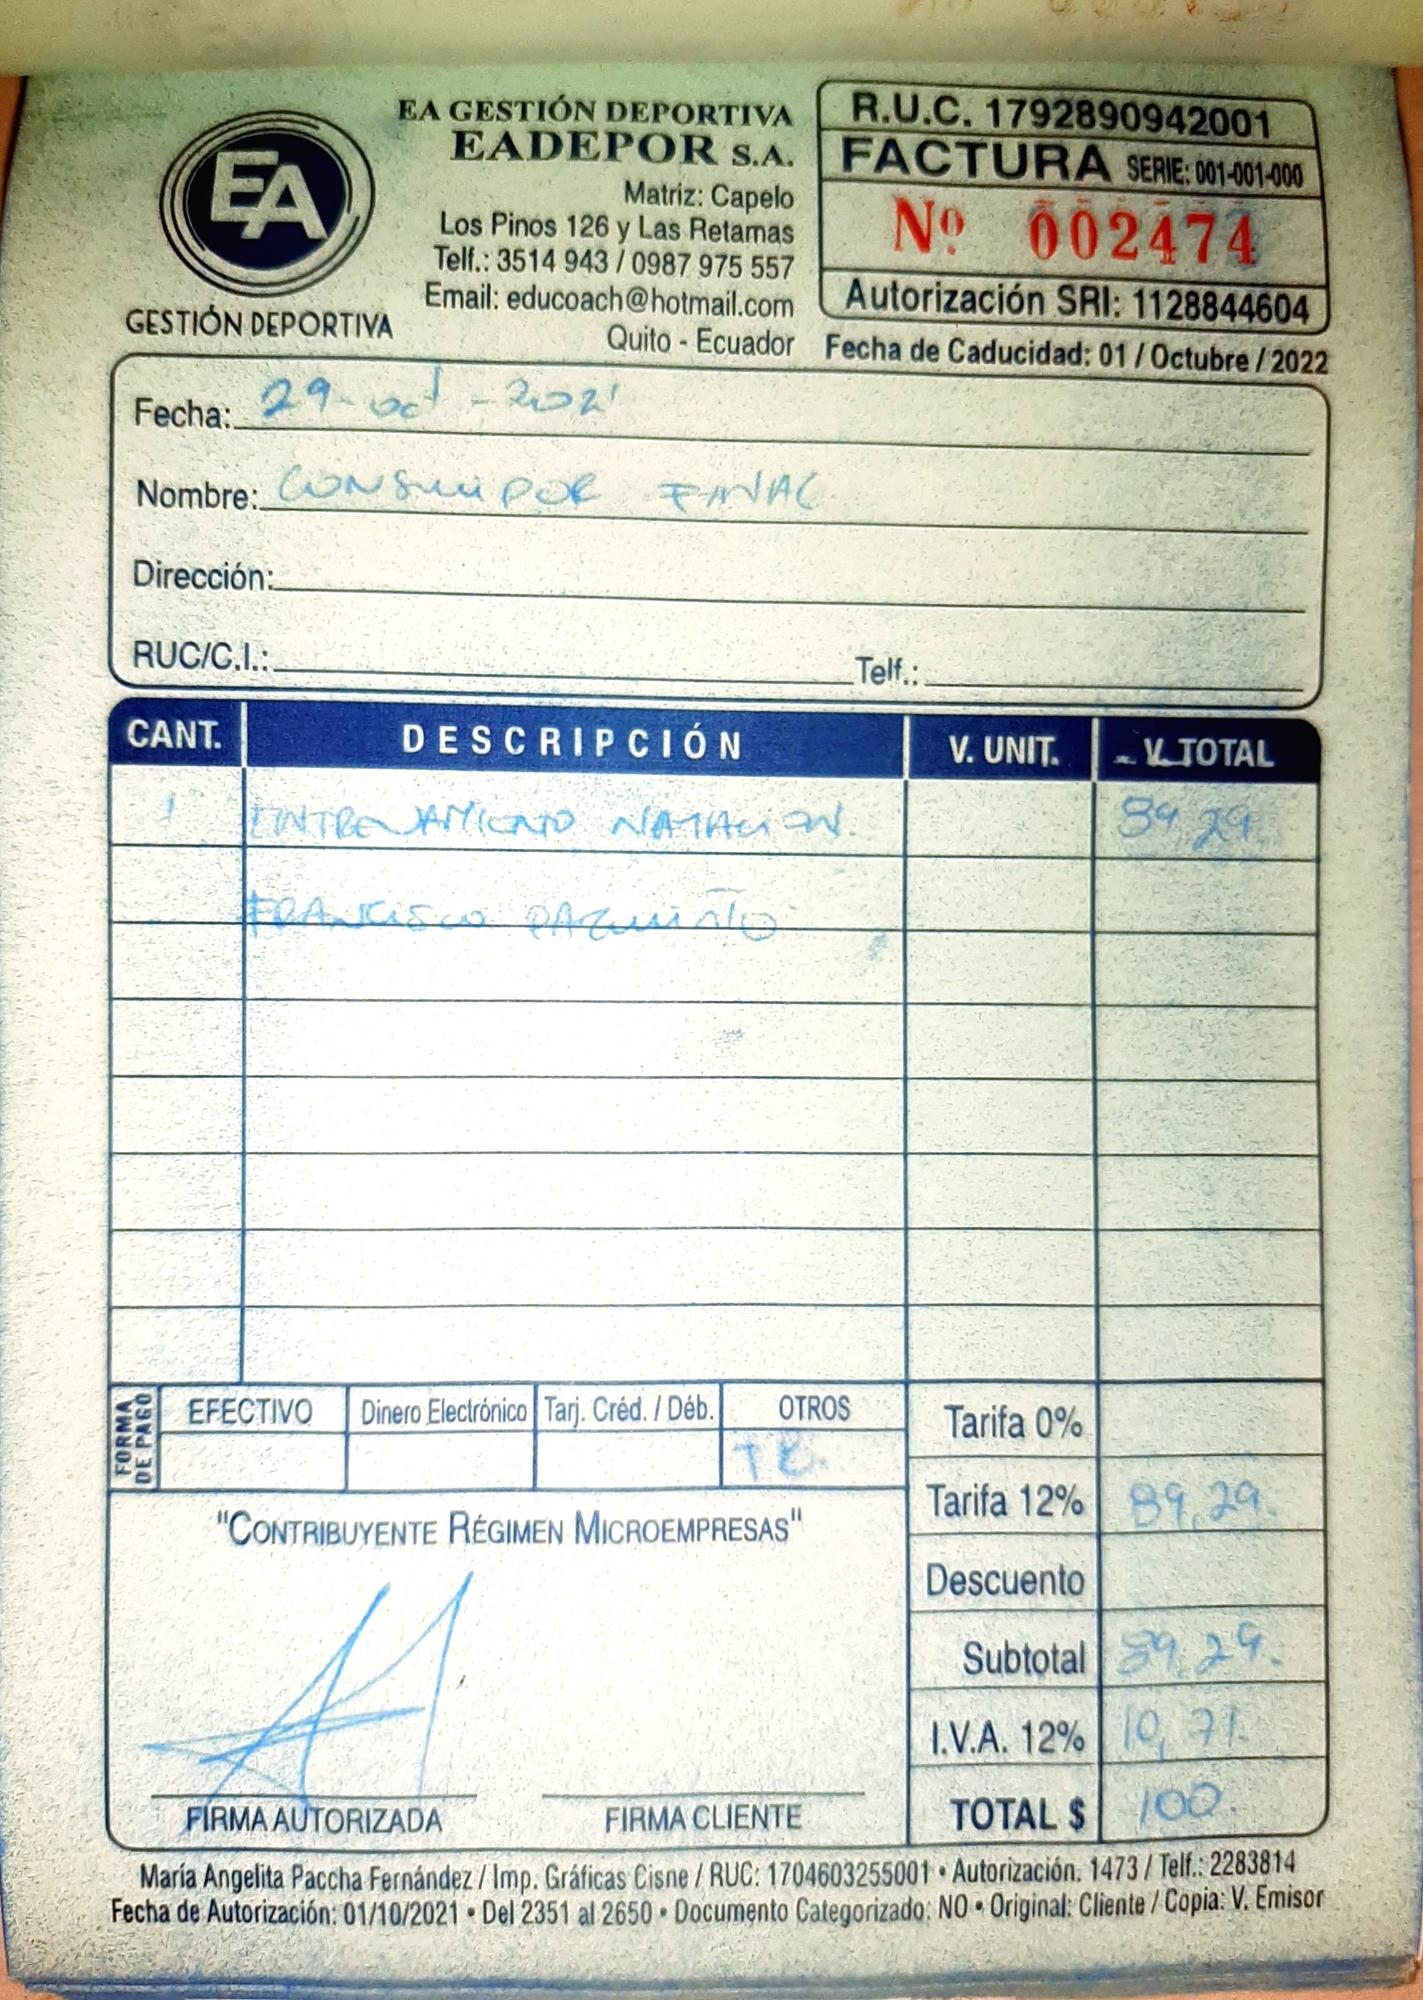 EA
GESTIÓN DEPORTIVA
EA GESTIÓN DEPORTIVA
EADEPOR S.A.
Matriz: Capelo
Los Pinos 126 y Las Retamas
Telf.: 3514 943 / 0987 975 557
Email: educoach@hotmail.com
Quito - Ecuador
R.U.C. 1792890942001
FACTURA SERIE: 001-001-000
Nº 002474
Autorización SRI: 1128844604
Fecha de Caducidad: 01 / Octubre / 2022
Fecha: 29-oct-2021
Nombre: CONSUMIDOR FINAL
Dirección:
RUC/C.I.: Telf.:
CANT. DESCRIPCIÓN V. UNIT. V. TOTAL
1 ENTRENAMIENTO NATACION. 89.29.
FRANCISCO PAZMIÑO
FORMA DE PAGO
EFECTIVO Dinero Electrónico Tarj. Créd. / Déb. OTROS
Tarifa 0%
Tarifa 12% 89.29.
Descuento
Subtotal 89.29.
I.V.A. 12% 10,71.
TOTAL $ 100.
"CONTRIBUYENTE RÉGIMEN MICROEMPRESAS"
FIRMA AUTORIZADA FIRMA CLIENTE
María Angelita Paccha Fernández / Imp. Gráficas Cisne / RUC: 1704603255001 • Autorización. 1473 / Telf.: 2283814
Fecha de Autorización: 01/10/2021 • Del 2351 al 2650 • Documento Categorizado: NO • Original: Cliente / Copia: V. Emisor